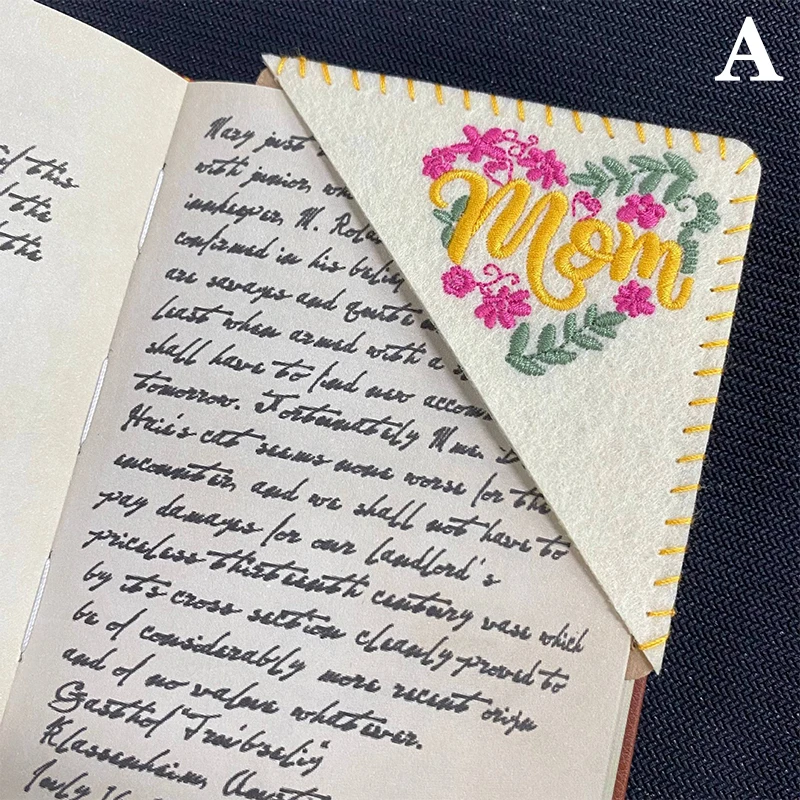 A
Mom
of this
the
the
Mary just
with junior,
innkeeper, H.
confirmed in his belief
are savages and quite
least when armed with a
shall have to find new
tomorrow. Fortunately Mme.
cat seems none worse for the
encounter, and we shall not have to
pay damages for our landlord's
priceless thirteenth century vase which
by its cross section cleanly proved to
be of considerably more recent origin
and of no value whatever.
Gasthof
Klassenheim,
July